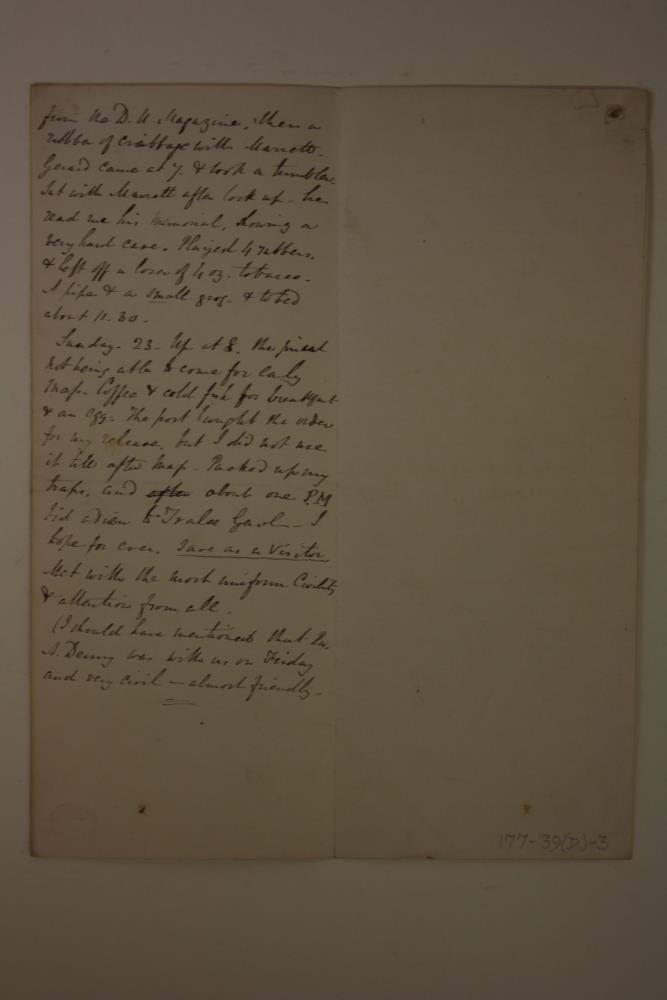 from the D. U. Magazine, then a
rubber of cribbage with Marrett.
Gerard came at 7. & took a tumbler.
Sat with Marrett after lock up - he
read me his memorial, showing a
very hard case. Played 4 rubbers.
& left off a loser of ½ oz. tobacco.
A pipe & a small grog - & to bed
about 11.30 -
Sunday. 23. Up at 8. the priest
not being able to come for early
Mass. Coffee & cold fish for breakfast
& an egg. The post brought the order
for my release, but I did not use
it till after Mass - Packed up my
traps, and after about one P.M
bid adieu to Tralee Gaol - I
hope for ever. Save as a Visitor
Met with the most uniform Civility
& attention from all.
(I should have mentioned that
A. Denny was with us on Friday
and very civil - almost friendly -
177-'39(D)-3